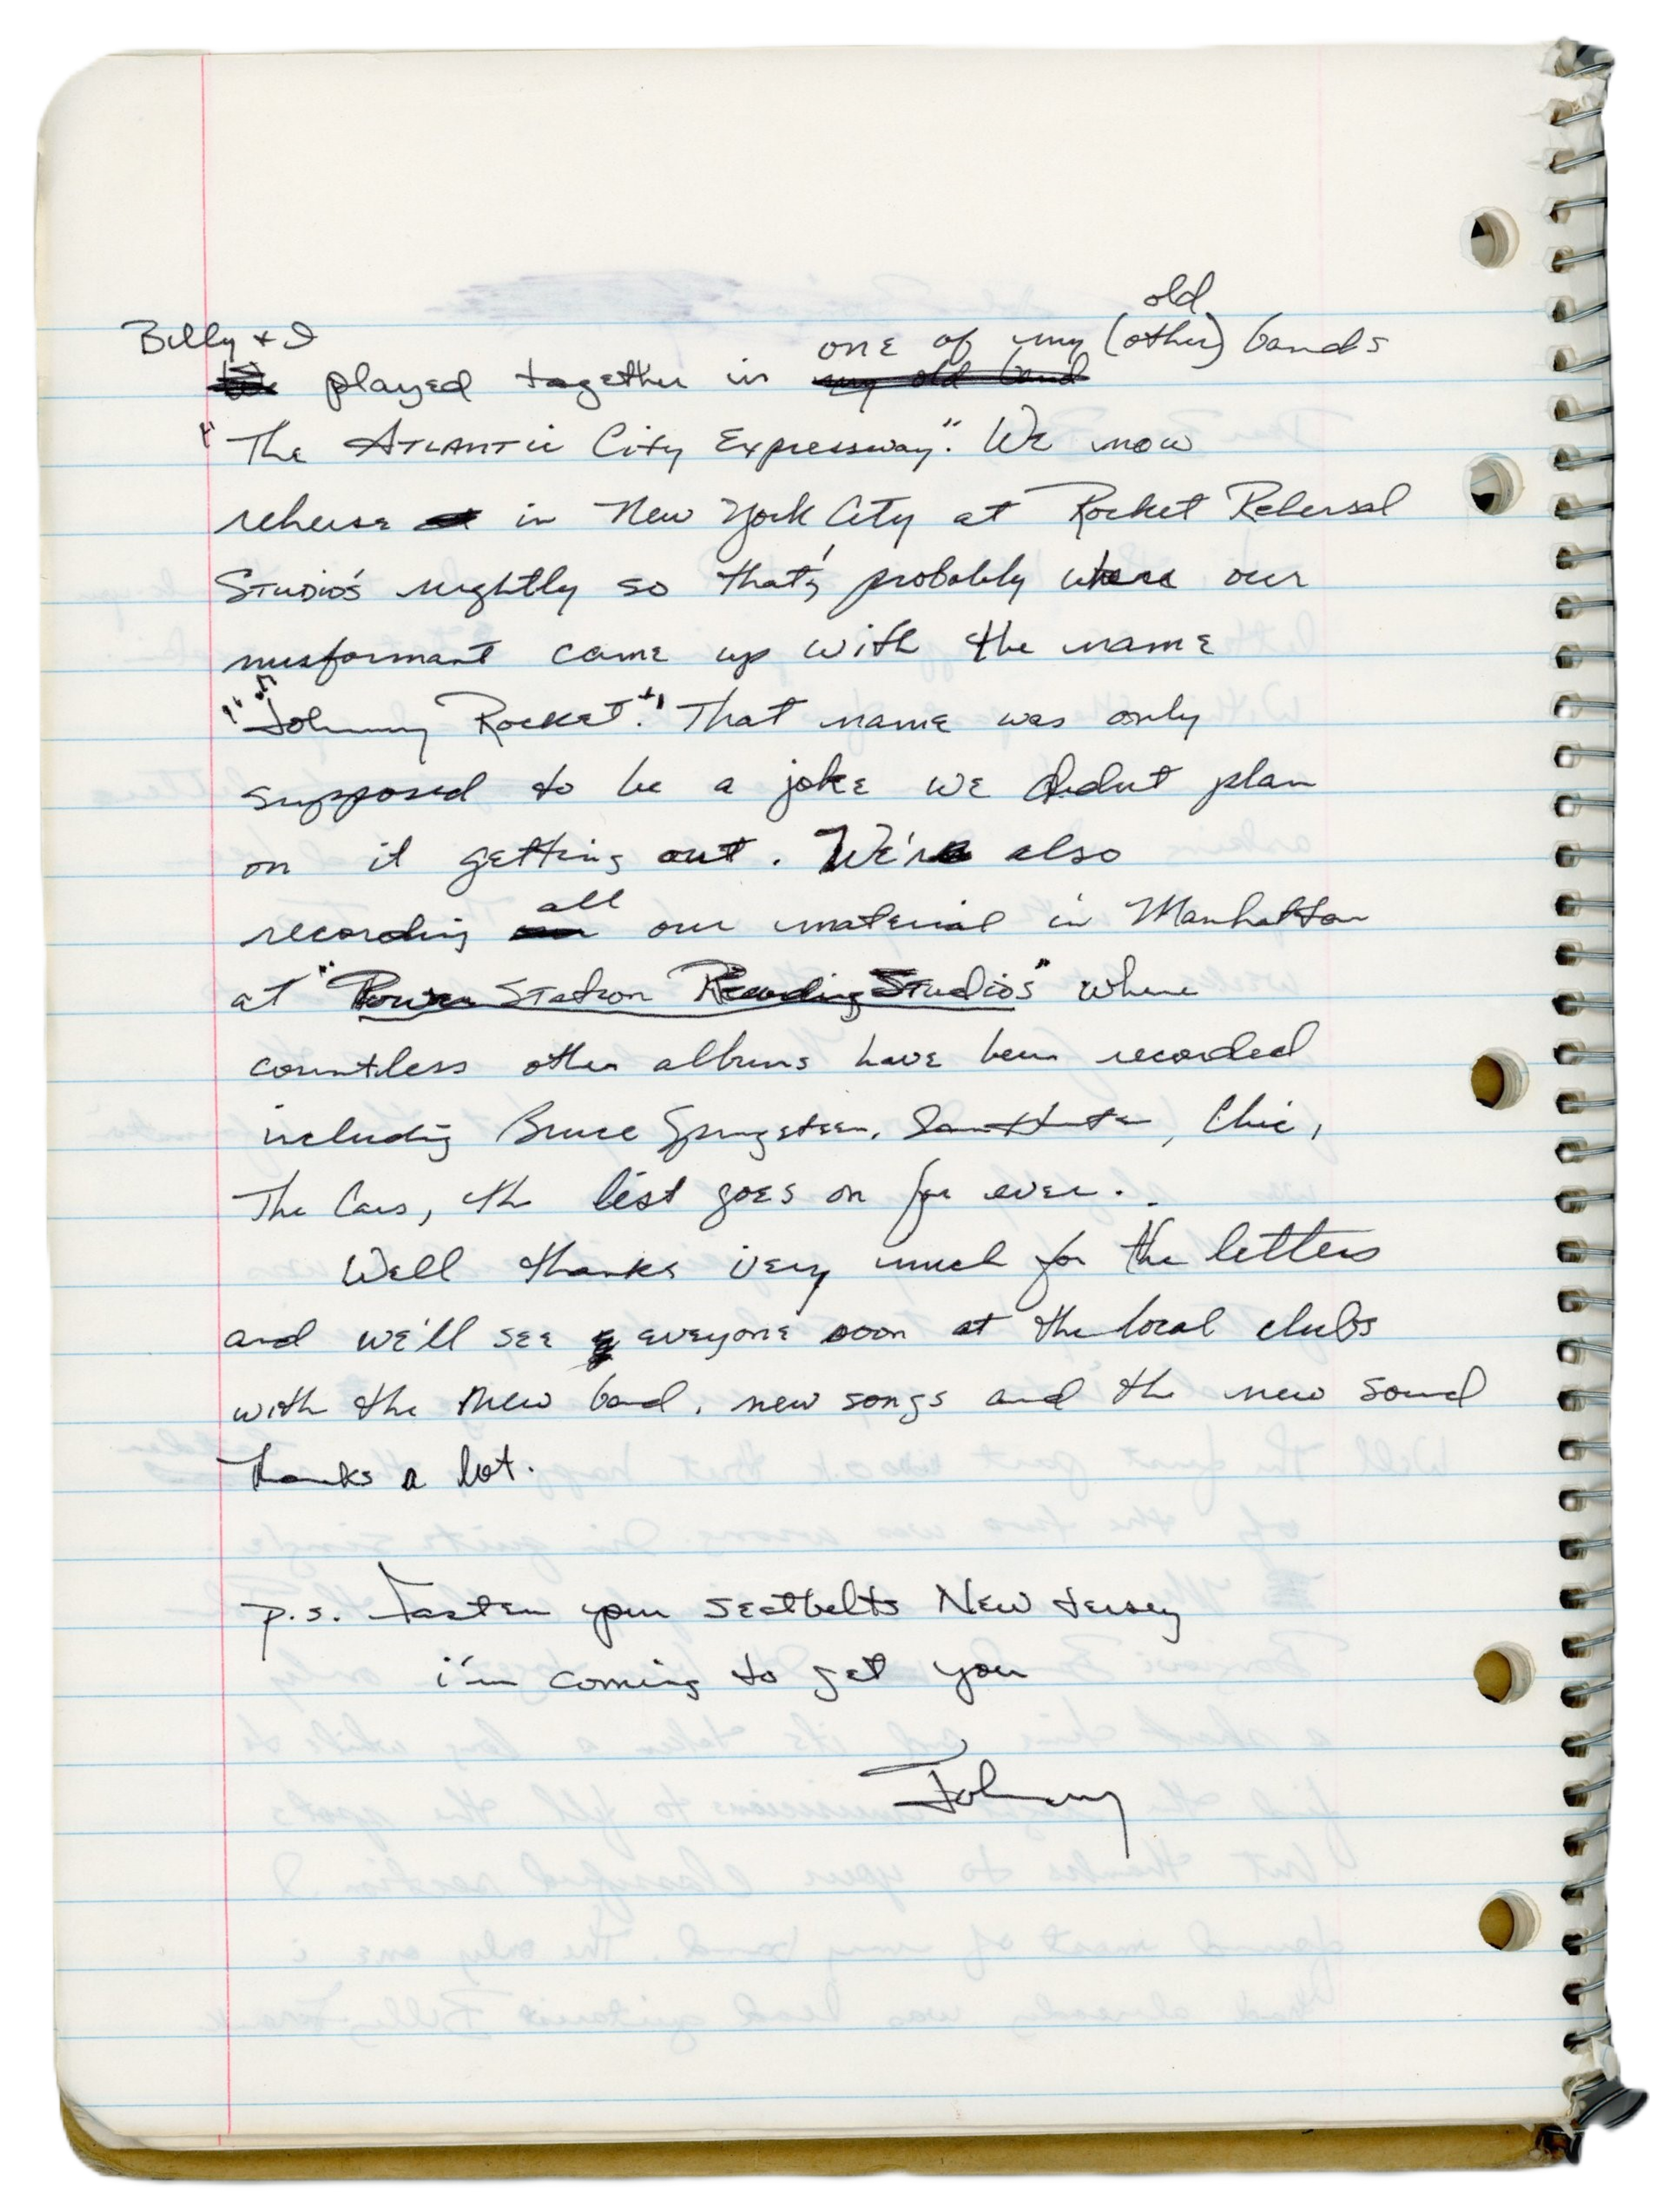 old
Billy + I one of my (other) bands
played together in my old band
"The Atlantic City Expressway." We now
reherse in New York City at Rocket Rehersal
Studio's nightly so that's probably where our
misformant came up with the name
"Johnny Rocket". That name was only
supposed to be a joke we didnt plan
on it getting out. We're also
all
recording our material in Manhattan
at "Power Station Recording Studios" where
countless other albums have been recorded
including Bruce Springsteen, Ian Hunter, Chic,
The Cars, the list goes on for ever.
Well thanks very much for the letters
and we'll see everyone soon at the local clubs
with the new band, new songs and the new sound
thanks a lot.
p.s. Fasten your seatbelts New Jersey
i'm coming to get you
Johnny